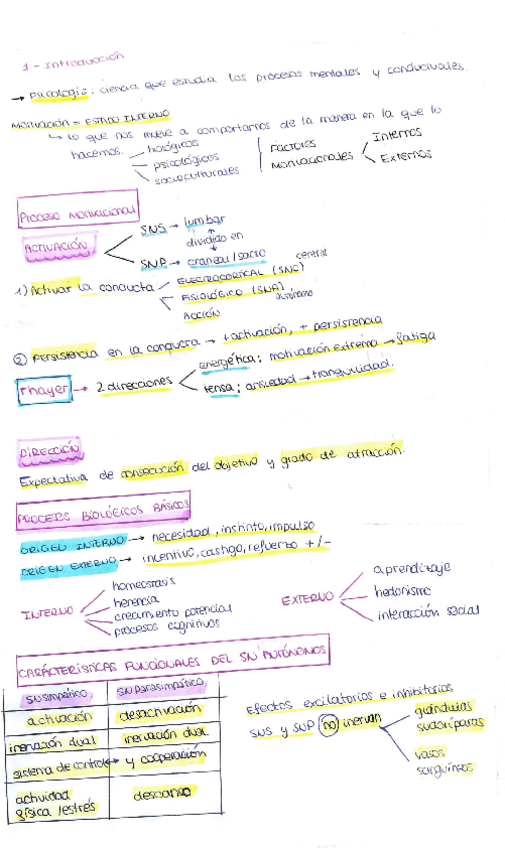 1 - Introducción
→ Psicología: ciencia que estudia los procesos mentales y conductuales.
MOTIVACIÓN = ESTADO INTERNO
↳ lo que nos mueve a comportarnos de la manera en la que lo
hacemos.
biológicos
psicológicos
socioculturales
Factores
motivacionales
Internos
Externos
PROCESO MOTIVACIONAL
ACTIVACIÓN
SNS → lumbar
dividido en
SNP → craneal/sacro
1) Activar la conducta
ELECTROCORTICAL (SNC)
central
FISIOLÓGICO (SNA)
autónomo
ACCIÓN
② Persistencia en la conducta → +activación, + persistencia
Thayer → 2 direcciones
energética: motivación extrema → fatiga
tensa: ansiedad → tranquilidad.
DIRECCIÓN
Expectativa de consecución del objetivo y grado de atracción.
PROCESOS BIOLÓGICOS BÁSICOS
ORIGEN INTERNO → necesidad, instinto, impulso
ORIGEN EXTERNO → incentivo, castigo, refuerzo +/-
INTERNO
homeostasis
herencia
crecimiento potencial
procesos cognitivos
EXTERNO
aprendizaje
hedonismo
interacción social
CARÁCTERISTICAS FUNCIONALES DEL SN AUTÓNOMOS
SN simpático
SN Parasimpático
activación
desactivación
inervación dual
inervación dual
sistema de control ↔ y cooperación
actividad
física /estrés
descanso
Efectos excitatorios e inhibitorios
SNS y SNP no inervan
glándulas
sudoríparas
vasos
sanguíneos